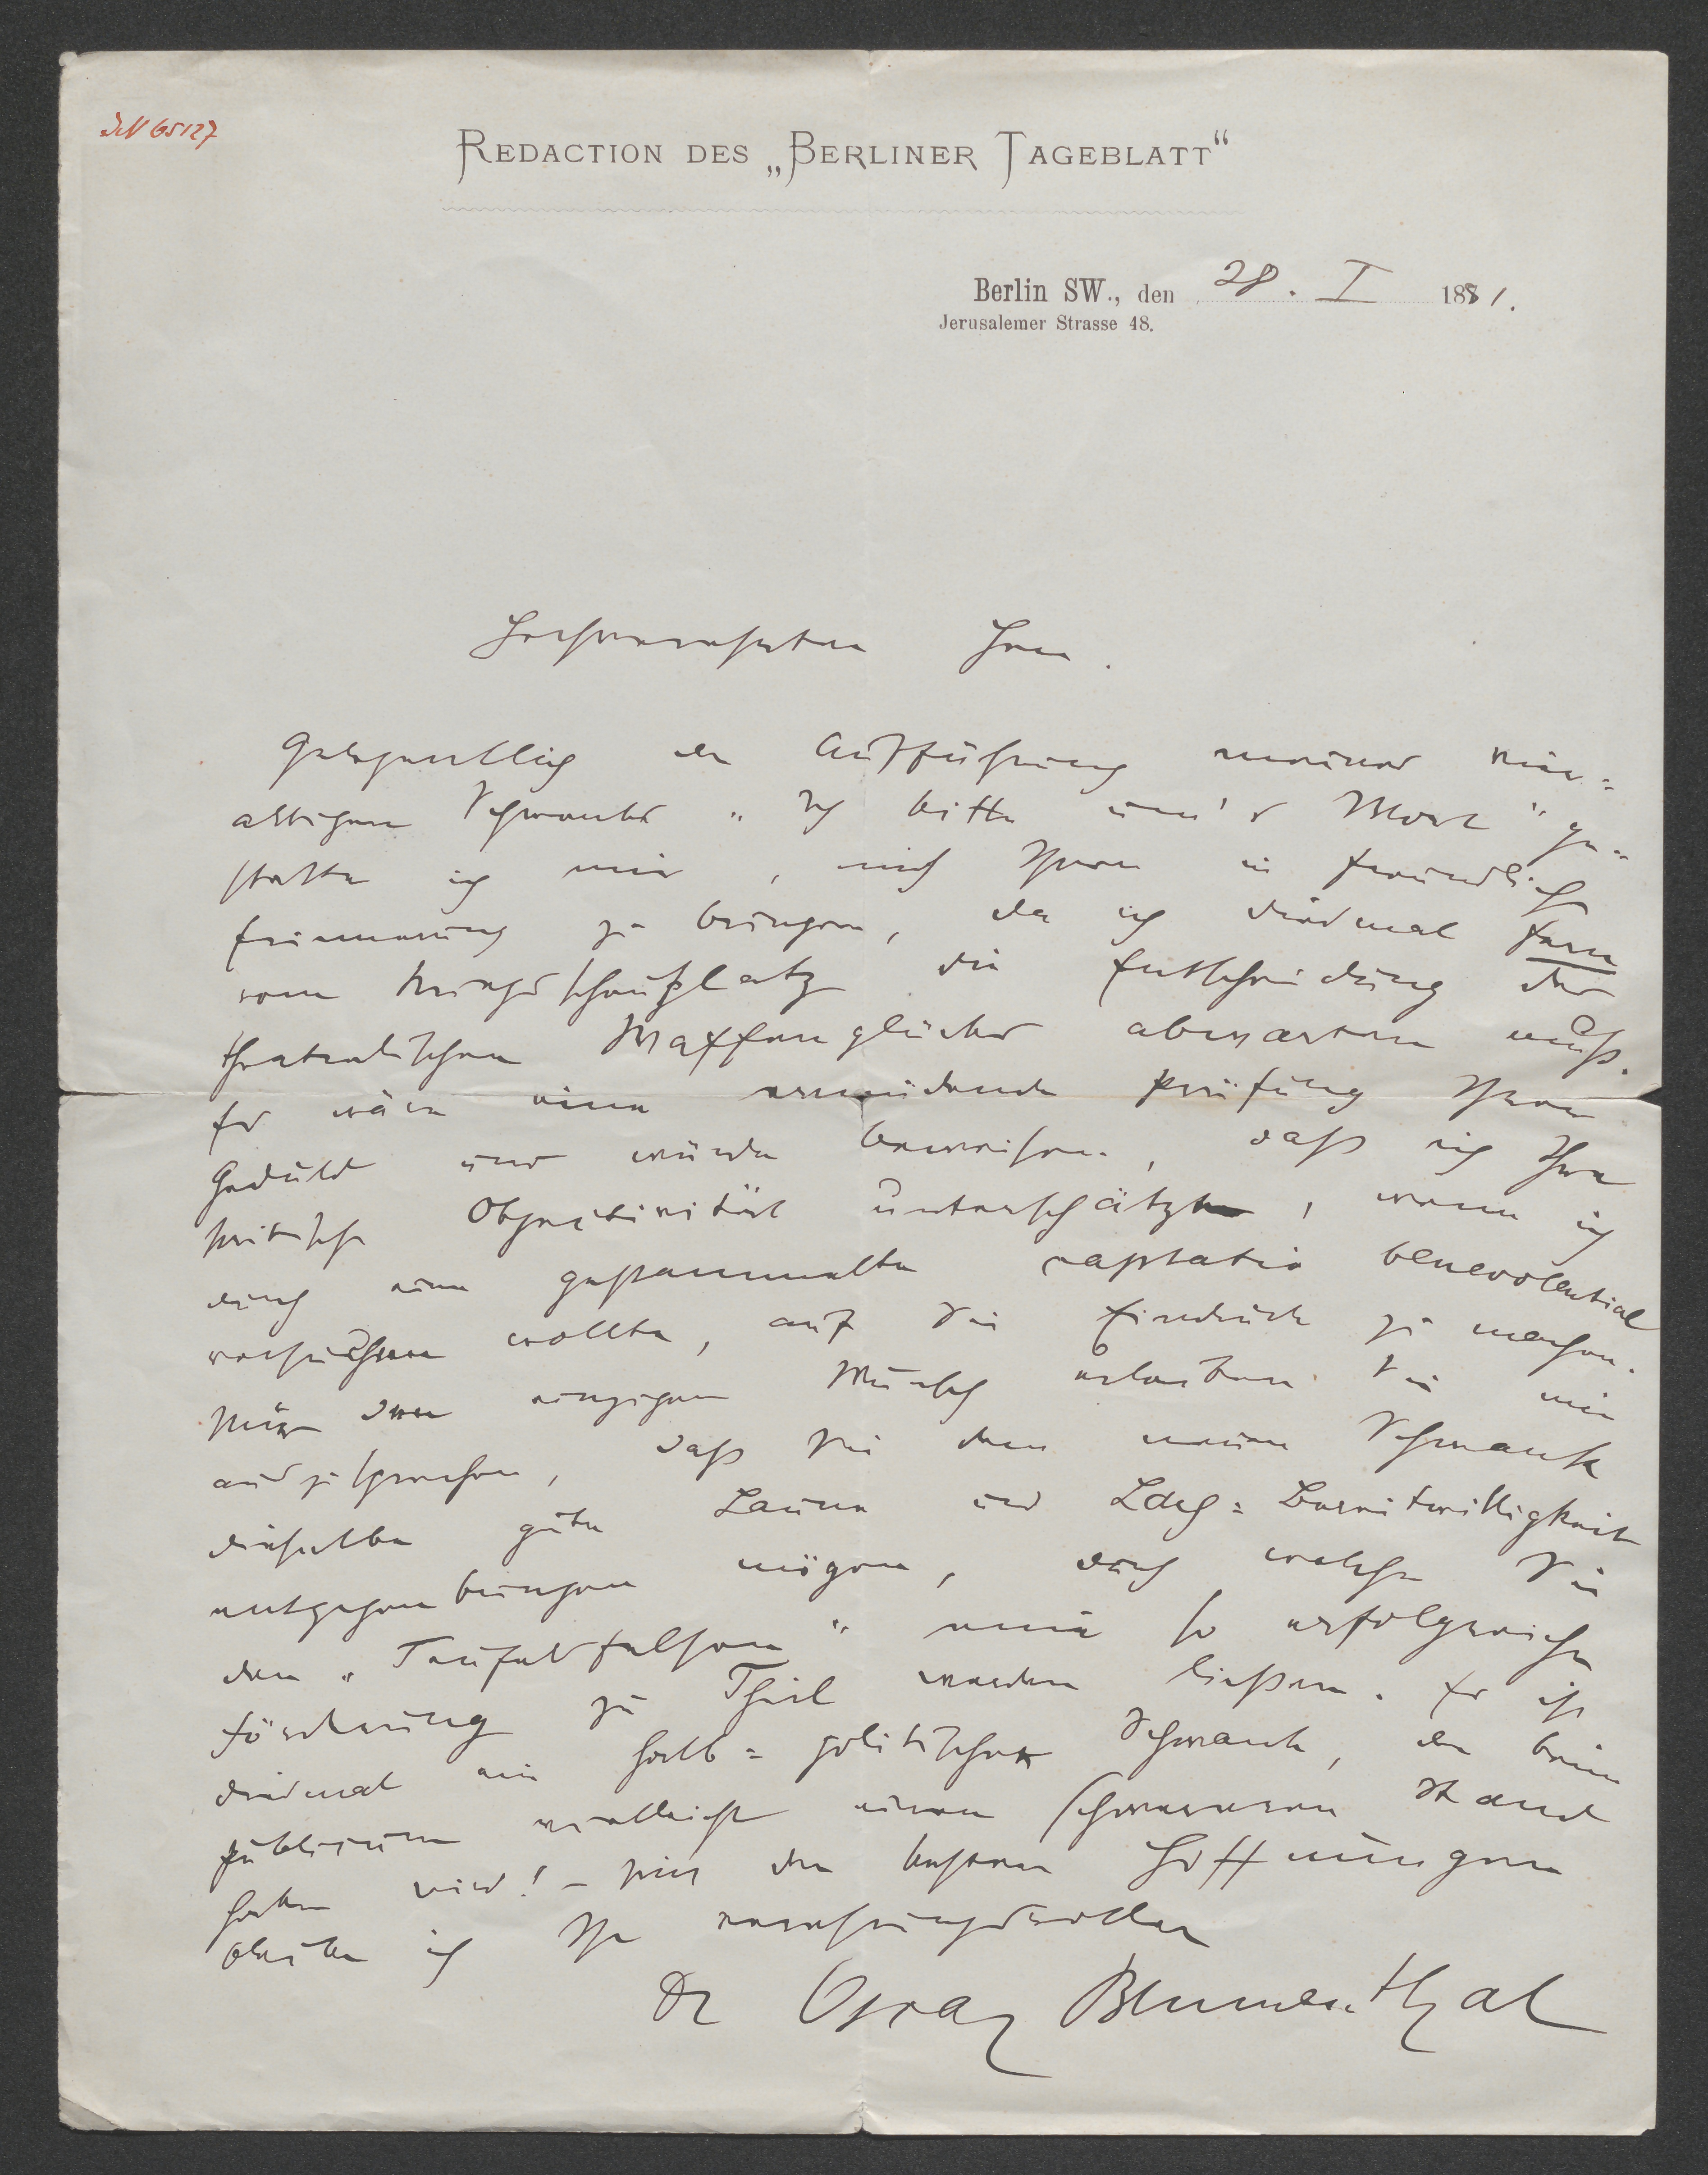 JN 65127
REDACTION DES „BERLINER TAGEBLATT“
Berlin SW., den 28. I 1881.
Jerusalemer Strasse 48.
Hochverehrter Herr.
Gelegentlich der Aufführung meines ein-
aktigen Schwankes „Ich bitte um's Wort“ ge-
statte ich mir, mich Ihnen in freundliche
Erinnerung zu bringen, da ich diesmal fern
vom Kriegsschauplatz die Entscheidung des
theatralischen Waffenglückes abwarten muß.
Es wäre eine ermüdende Prüfung Ihrer
Geduld und würde beweisen, daß ich Ihre
kritische Objectivität unterschätzte, wenn ich
durch eine gestammelte captatio benevolentiae
versuchen wollte, auf Sie Eindruck zu machen.
Nur den einzigen Wunsch erlauben Sie mir
auszusprechen, daß Sie dem neuen Schwank
dieselbe gute Laune und Lach-Bereitwilligkeit
entgegenbringen mögen, durch welche Sie
den „Teufelsfelsen“ eine so erfolgreiche
Förderung zu Theil werden ließen. Es ist
diesmal ein halb-politischer Schwank, der beim
Publicum vielleicht einen schwereren Stand
haben wird! – Mit den besten Hoffnungen
bleibe ich Ihr verehrungsvoller
Dr Oscar Blumenthal